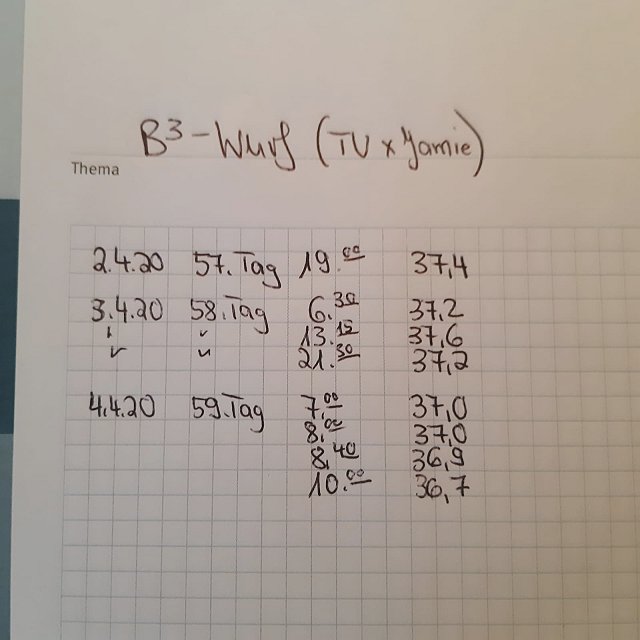 B3-Wurf (TV x Yamie)
Thema
2.4.20 57.Tag 19.00 37,4
3.4.20 58.Tag 6.30 37,2
" " 13.15 37,6
" " 21.30 37,2
4.4.20 59.Tag 7.00 37,0
8.00 37,0
8.40 36,9
10.00 36,7